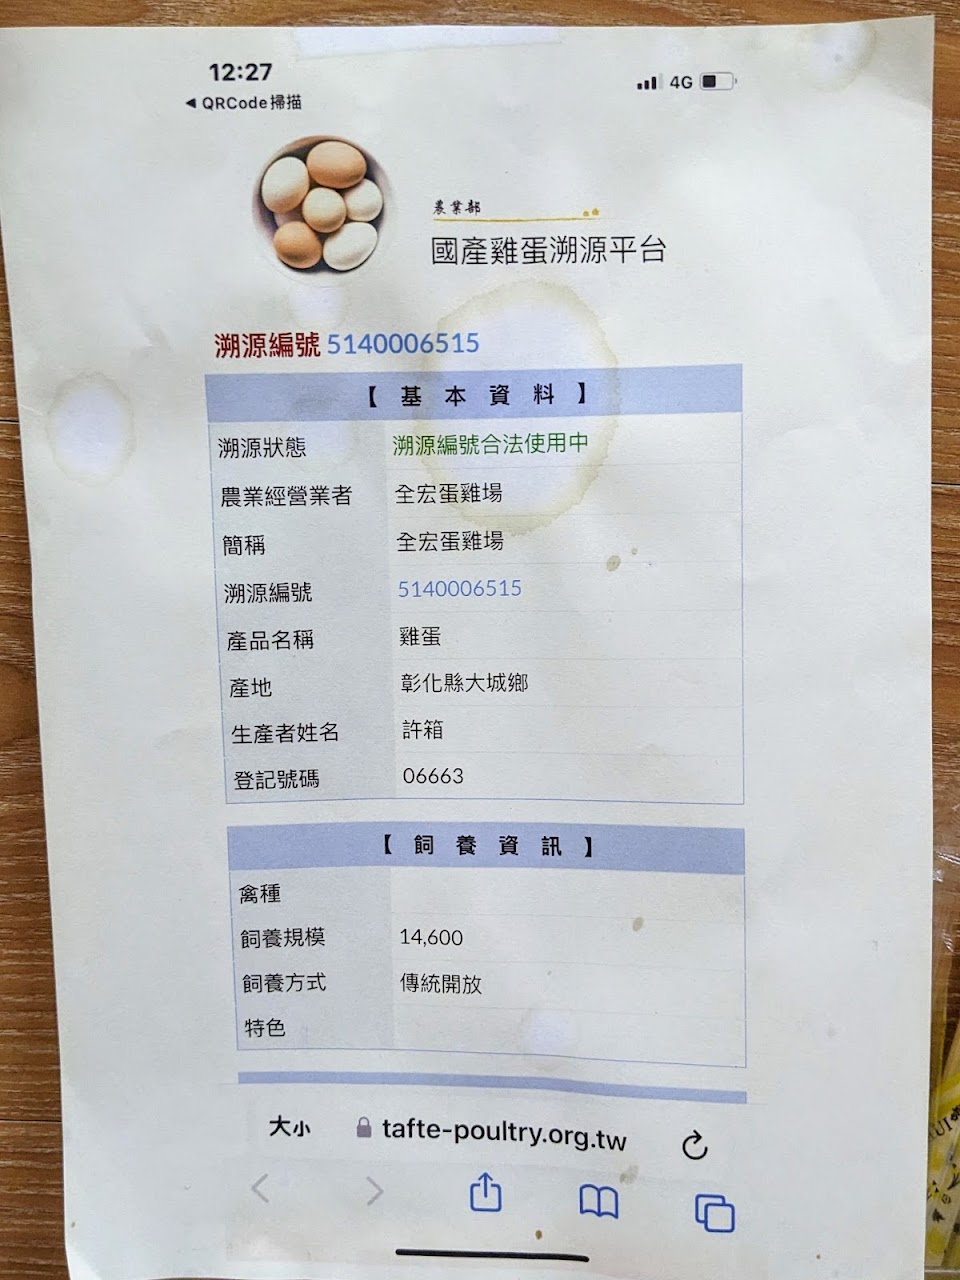 12:27
4G
◀ QRCode掃描
農業部
國產雞蛋溯源平台
溯源編號 5140006515
【 基 本 資 料 】
溯源狀態 溯源編號合法使用中
農業經營業者 全宏蛋雞場
簡稱 全宏蛋雞場
溯源編號 5140006515
產品名稱 雞蛋
產地 彰化縣大城鄉
生產者姓名 許箱
登記號碼 06663
【 飼 養 資 訊 】
禽種
飼養規模 14,600
飼養方式 傳統開放
特色
大小 tafte-poultry.org.tw